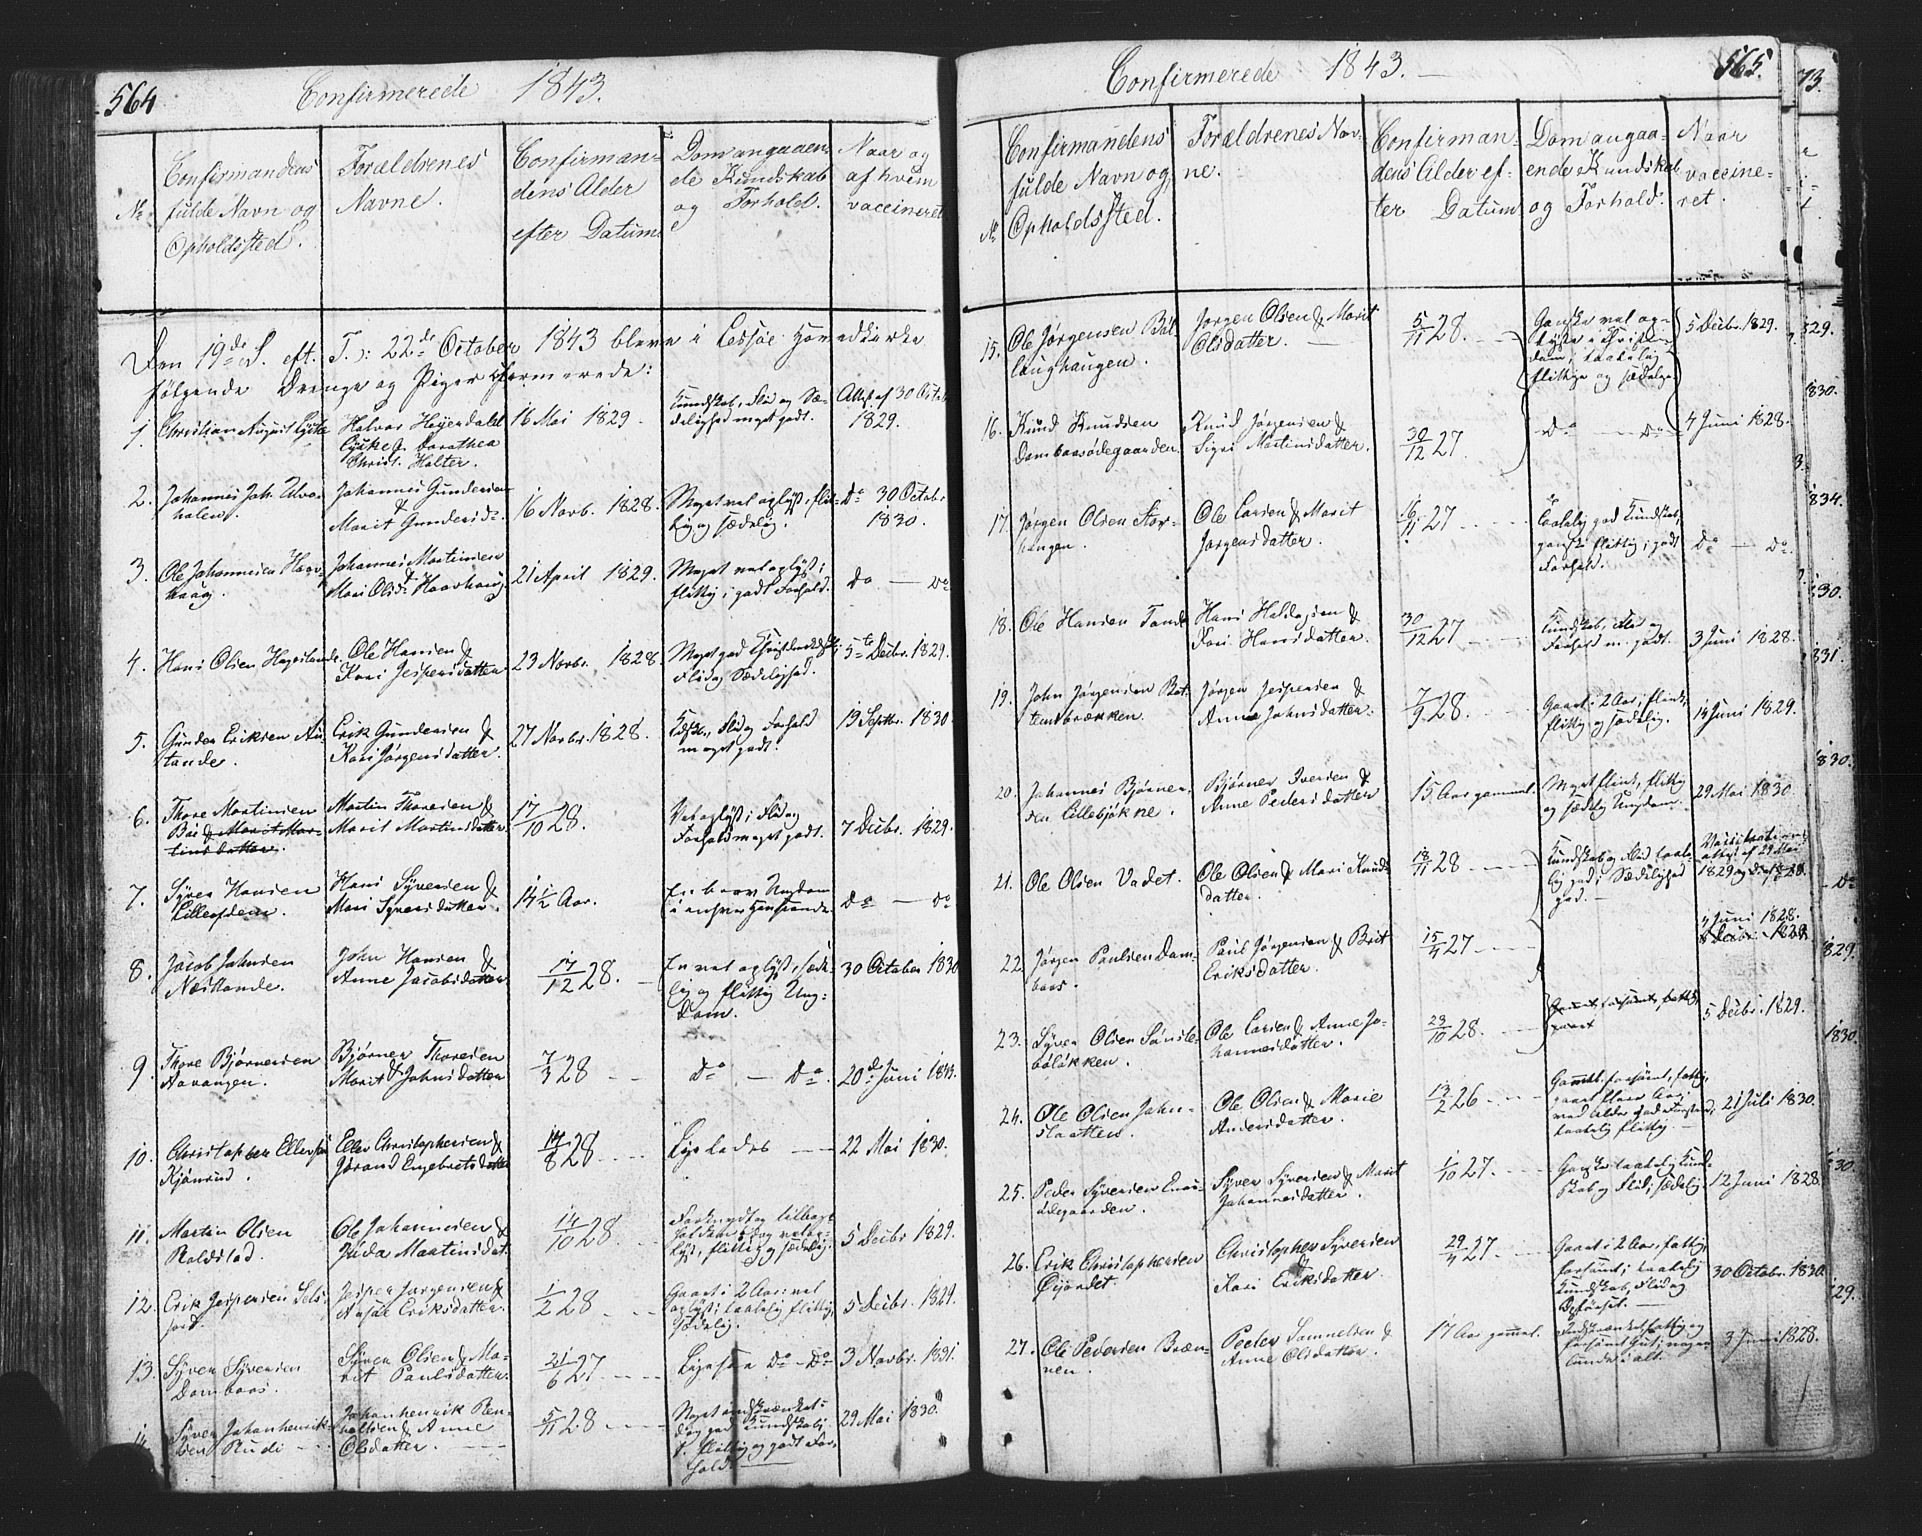 564
Confirmerede 1843.
No
Confirmandens
fulde Navn og
Opholdssted.
Forældrenes
Navne.
Confirman-
dens Alder
efter Datum.
Dom angaaen-
de Kundskab
og Forhold.
Naar og
af hvem
vaccineret
Den 19de S. eft. T.: 22de October 1843 bleve i Lessøe Hovedkirke
følgende Drenge og Piger confirmerede:
1. Christian August Lyske
Halvor Heyerdahl
Lyske & Dorothea
Christ. Holter.
16 Mai 1829.
Kundskab, Flid og Sæ-
delighed meget godt.
Attest af 30 Octob
1829.
2. Johannes Joh.
Johannes Gundersen
&
Marit Gundersd.
16 Novb. 1828.
Meget vel oplyst, flit-
tig og sædelig.
Do 30 Octobr
1830.
3. Ole Johannesen
Johannes Martinsen
&
Mari Olsd.
21 April 1829.
Meget vel oplyst;
flittig; godt Forhold.
Do — Do
4. Hans Olsen
Ole Hansen &
Kari Jespersdatter
23 Novbr. 1828.
Meget god
Flid og Sædelighed.
5te Decbr. 1829.
5. Gunder Eriksen Au-
stande.
Erik Gundersen &
Kari Jørgensdatter.
27 Novbr. 1828.
Flid og Forhold
meget godt.
13 Septbr. 1830.
6. Thore Martinsen
Bøe & Marit Mar-
tinsdatter.
Martin Thoresen &
Marit Martinsdatter
17/10 28.
Vel oplyst; Flid og
Forhold meget godt.
7 Decbr. 1829.
7. Syver Hansen
Hans Syversen &
Mari Syversdatter.
14 1/2 Aar.
En brav Ungdom
i enhver Henseende.
Do — Do
8. Jacob Johnsen
Næstande.
John Hansen &
Anne Jacobsdatter
17/12 28.
En vel oplyst, sæde-
lig og flittig Ung-
dom.
30 October 1830
9. Thore Bjørnersen
Aavangen.
Bjørner Thoresen
&
Marit Johnsdatter
7/3 28
Do — Do
20de Juni 1843.
10. Christopher Ellevsen
Kjønrud.
Ellev Christophersen &
Jørand Engebretsdatter
14/8 28
Ligeledes
22 Mai 1830.
11. Martin Olsen
Ole Johannesen &
Martinsdat.
14/10 28.
lyst, flittig og sædelig.
5 Decbr 1829.
12. Erik Jespersen Sels-
jord.
Jesper Jørgensen &
Eriksdatter.
1/2 28
Gaaet i 2 Aar; vel
oplyst; taalelig flittig,
sædelig.
5 Decbr. 1829.
13. Syver Syversen
Dombaas.
Syver Olsen & Ma-
rit Paulsdatter.
21/6 27
Ligesaa Do — Do
3 Novbr. 1831.
14. Syver Johanhenrik-
sen Rudi
Johanhenrik
& Anne
Olsdatter.
5/11 28
Noget indskrænket;
dog god Kundskab;
flittig og godt For-
hold.
29 Mai 1830.
Confirmerede 1843. —
565.
No
Confirmandens
fulde Navn og
Opholdssted.
Forældrenes Nav-
ne.
Confirman-
dens Alder ef-
ter Datum
Dom angaa-
ende Kundskab
og Forhold.
Naar
vaccine-
ret.
15. Ole Jørgensen
Jørgen Olsen & Marit
Olsdatter.
5/11 28.
Ganske vel op-
lyst i Christen-
dom; taalelig
flittige og sædelige.
5 Decbr. 1829.
16. Knud Knudsen
Dombaasødegaarden.
Knud Jørgensen &
Sigri Martinsdatter.
30/12 27.
Do — Do
4 Juni 1828.
17. Jørgen Olsen Stor-
haugen.
Ole Larsen & Marit
Jørgensdatter.
16/11 27
Taalelig god Kundskab,
ganske flittig; godt
Forhold.
Do — Do
18. Ole Hansen Tande
Hans &
Kari Hansdatter.
30/12 27
Kundskab, Flid og
Forhold m. godt.
3 Juni 1828.
19. John Jørgensen Bot-
tembrækken.
Jørgen Jespersen &
Anne Johnsdatter.
7/9 28.
Gaaet i 2 Aar; flink;
flittig og sædelig.
14 Juni 1829.
20. Johannes Bjørner-
sen Lillebjøkne.
Bjørner Iversen &
Anne Pedersdatter
15 Aar gammel.
Meget flink, flittig
og sædelig Ungdom.
29 Mai 1830.
21. Ole Olsen Vadet.
Ole Olsen & Mari Knuds-
datter.
18/11 28
Kundskab og Flid taale-
lig god; Sædelighed
god. —
Vaccinations
attest af 29 Mai
1829
22. Jørgen Paulsen Dom-
baas.
Paul Jørgensen & Brit
Eriksdatter.
15/4 27
4 Juni 1828.
23. Syver Olsen
Ole Larsen & Anne Jo-
hannesdatter.
23/10 28.
5 Decbr. 1829.
24. Ole Olsen John-
slaatten.
Ole Olsen & Marie
Andersdatter.
13/2 26
taalelig flittig. —
21 Juli 1830.
25. Peder Syversen
ødegaarden.
Syver Syversen & Marit
Johannesdatter.
1/10 27.
Ganske taalelig Kund-
skab og Flid; sædelig
12 Juni 1828.
26. Erik Christophersen
Øijordet.
Christopher Syversen
&
Kari Eriksdatter.
29/4 27
Gaaet i 2 Aar, fattig,
forsømt; taalelig
Kundskab, Flid og
Opførsel. —
30 Octobr. 1830.
27. Ole Pedersen Bræn-
nen.
Peder Samuelsen &
Anne Olsdatter.
17 Aar gammel.
3 Juni 1828.
73.
829.
830.
834.
830.
831.
830.
Do
1829.
1830.
830.
829.